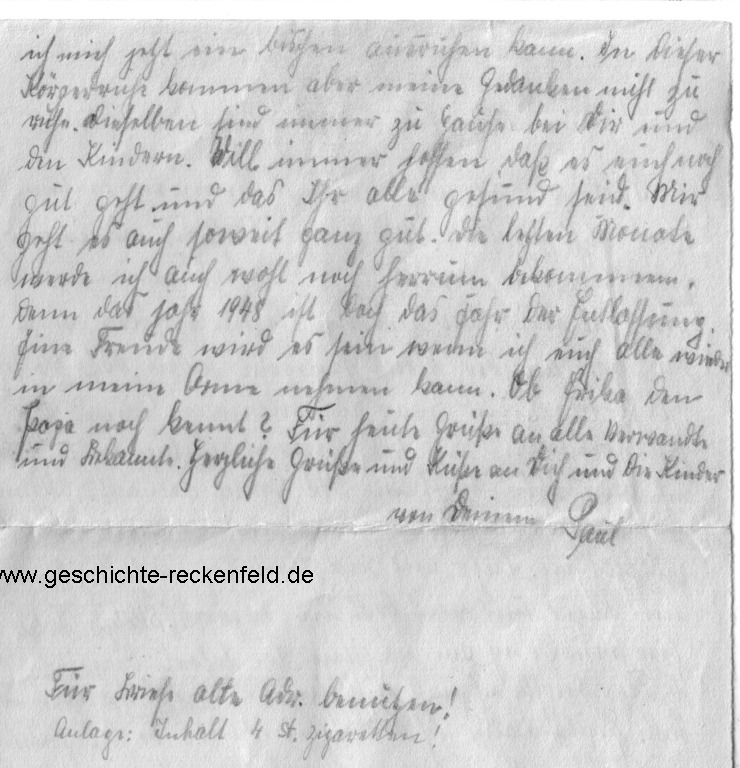 ich mich jetzt ein bischen ausruhen kann. In dieser
Körperruhe kommen aber meine Gedanken nicht zu
ruhe. Dieselben sind immer zu Hause bei Dir und
den Kindern. Will immer hoffen daß es euch noch
gut geht und das Ihr alle gesund seid. Mir
geht es auch soweit ganz gut. Die letzten Monate
werde ich auch wohl noch herrum bekommen,
denn das Jahr 1948 ist doch das Jahr der Entlassung.
Eine Freude wird es sein wenn ich euch alle wieder
in meine Arme nehmen kann. Ob Erika den
Papa noch kennt? Für heute Grüße an alle Verwandte
und Bekannte. Herzliche Grüße und Küße an Dich und die Kinder
von Deinem Paul
www.geschichte-reckenfeld.de
Für Briefe alte Adr. benutzen!
Anlage: Inhalt 4 St. Zigaretten!